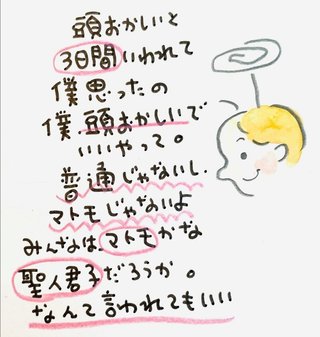 頭おかしいと
3日間いわれて
僕思ったの
僕、頭おかしいで
いいやって。
普通じゃないし、
マトモじゃないよ
みんなは、マトモかな
聖人君子だろうか。
なんて言われてもいい